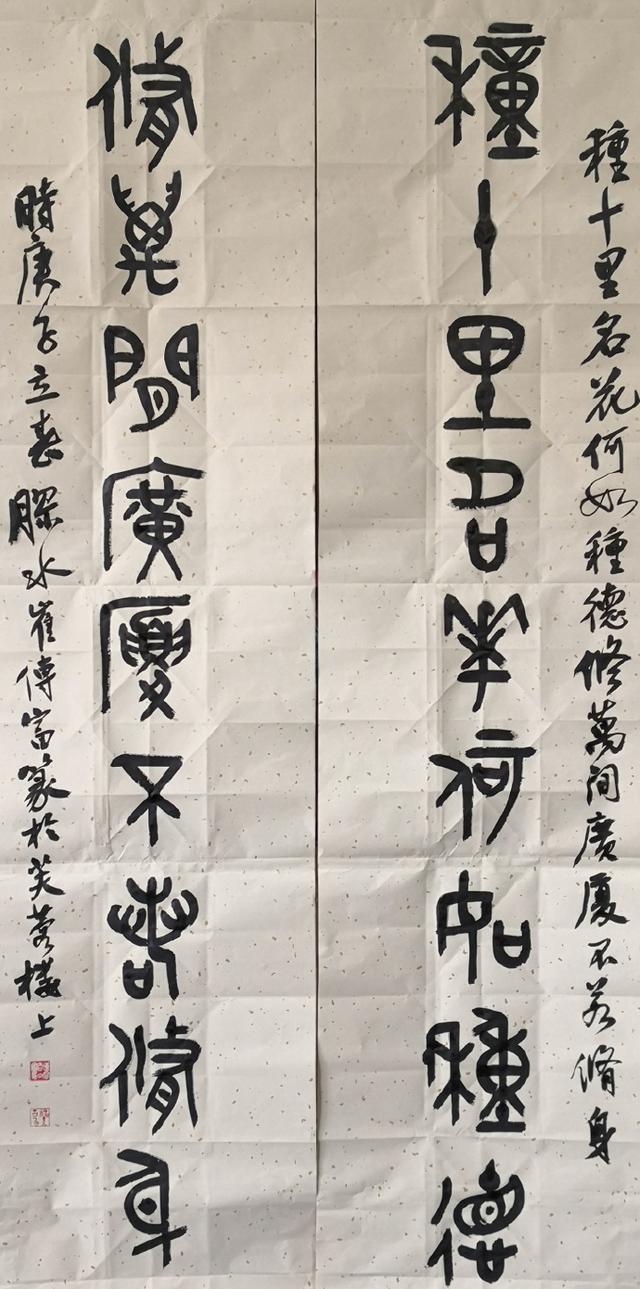 種十里名花何如種德修萬间廣廈不若脩身
種十里名華何如種德
脩萬閒廣廈不若脩身
時庚子立春膠水崔傳富篆於芙蓉樓上